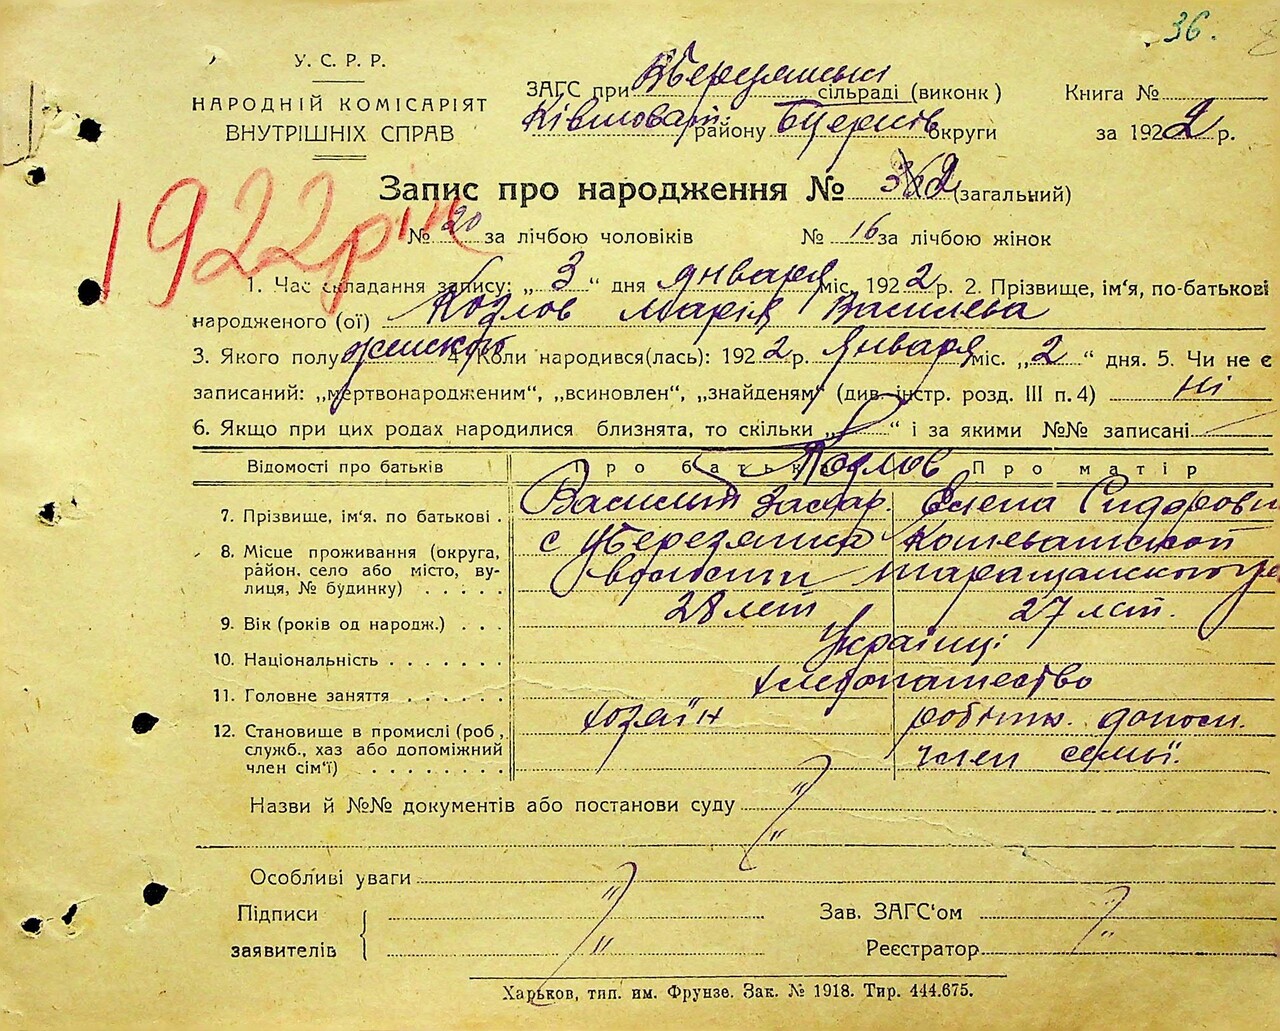 36.
У. С. Р. Р.
НАРОДНІЙ КОМІСАРІЯТ
ВНУТРІШНІХ СПРАВ
ЗАГС при сільраді (виконк)
району округи
Книга №
за 1922 р.
1922 рік
Запис про народження № 362 (загальний)
№ 20 за лічбою чоловіків № 16 за лічбою жінок
1. Час складання запису: „ 3 “ дня января міс. 1922 р. 2. Прізвище, ім‘я, по-батькові
народженого (ої) Козлов Марія Васильева
3. Якого полу женского 4. Коли народився(лась): 1922 р. Января міс. „ 2 “ дня. 5. Чи не є
записаний: „мертвонародженим“, „всиновлен“, „знайденям“ (див. інстр. розд. III п. 4) ні
6. Якщо при цих родах народилися близнята, то скільки „ “ і за якими №№ записані
Відомості про батьків Про батька Про матір
Козлов
7. Прізвище, ім‘я. по батькові . Василий Захар. Елена Сидоровн
8. Місце проживання (округа, с Убережанка
район. село або місто, ву- волости Таращанского
лиця, № будинку) . . . . .
9. Вік (років од народж.) . . . 28 лет 27 лет.
10. Національність . . . . . . . Українці
11. Головне заняття . . . . . . хлебопашество
12. Становище в промислі (роб, хозяїн робітн. допом.
служб., хаз або допоміжний член семьї.
член сім‘ї) . . . . . . . .
Назви й №№ документів або постанови суду
Особливі уваги
Підписи Зав. ЗАГС‘ом
заявителів Реєстратор
Харьков, тип. им. Фрунзе. Зак. № 1918. Тир. 444.675.